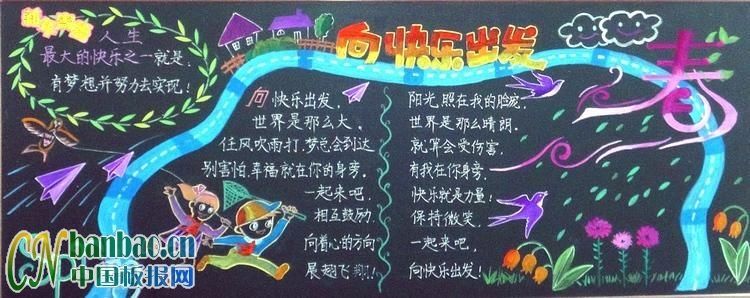 人生
最大的快乐之一就是,
有梦想并努力去实现!
向快乐出发
春
向快乐出发,
世界是那么大,
任风吹雨打,梦总会到达
别害怕,幸福就在你的身旁,
一起来吧,
相互鼓励,
向着心的方向
展翅飞翔!
阳光,照在我的脸庞,
世界是那么晴朗,
就算会受伤害,
有我在你身旁,
快乐就是力量!
保持微笑,
一起来吧,
向快乐出发!
CN banbao.cn
中国板报网